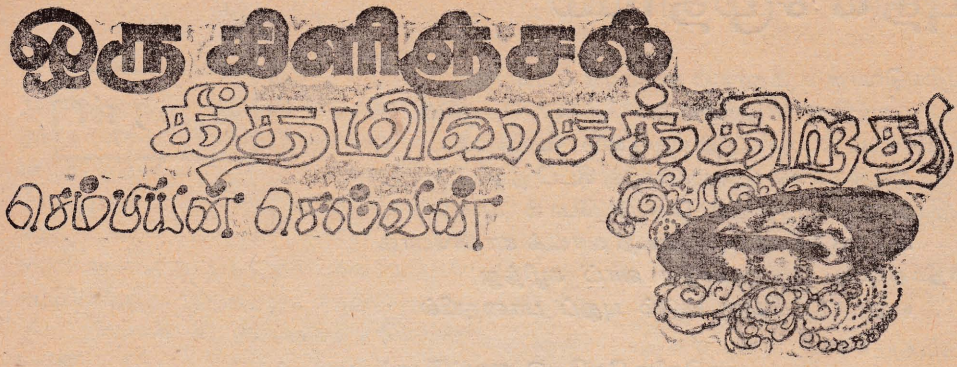 ஒரு கிளிஞ்சல்
கீதமிசைக்கிறது
செம்பியன் செல்வன்